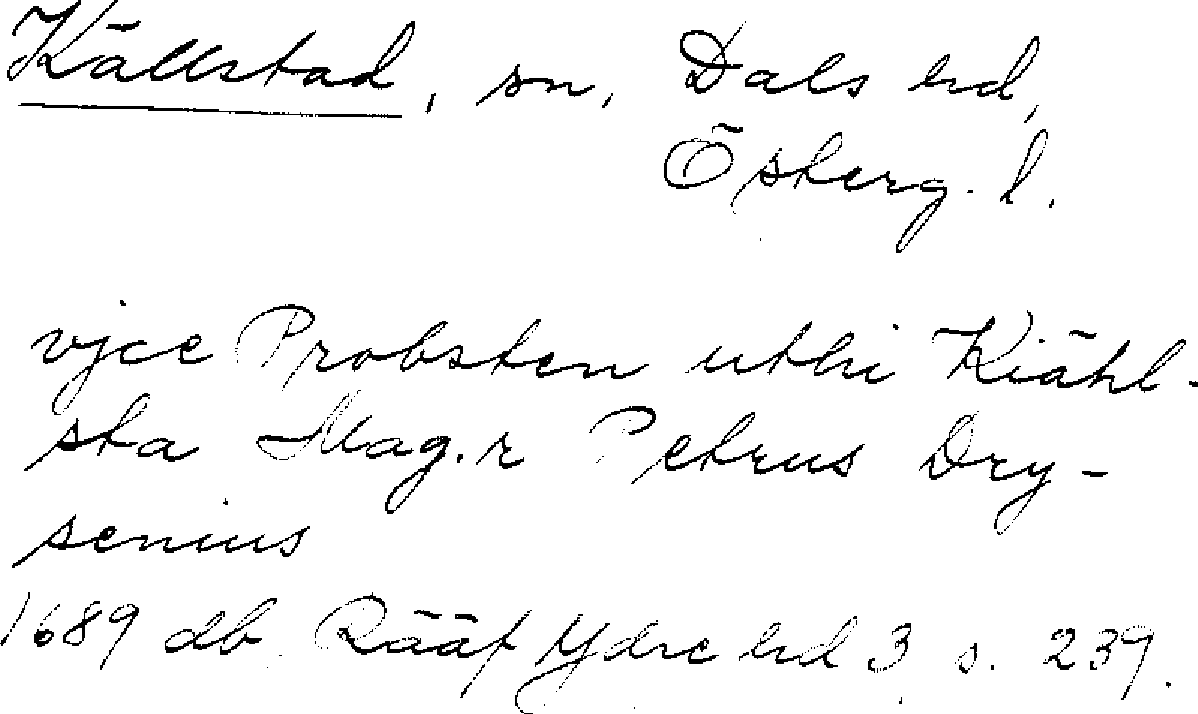 Källstad, sn, Dals hd,
Österg. l.
vjce Probsten uthi Kiähl-
sta Mag.r Petrus Dry-
senius
1689 db Rääf Ydre hd 3 s. 239.